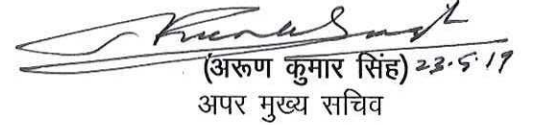 (अरुण कुमार सिंह) 23.5.19
अपर मुख्य सचिव